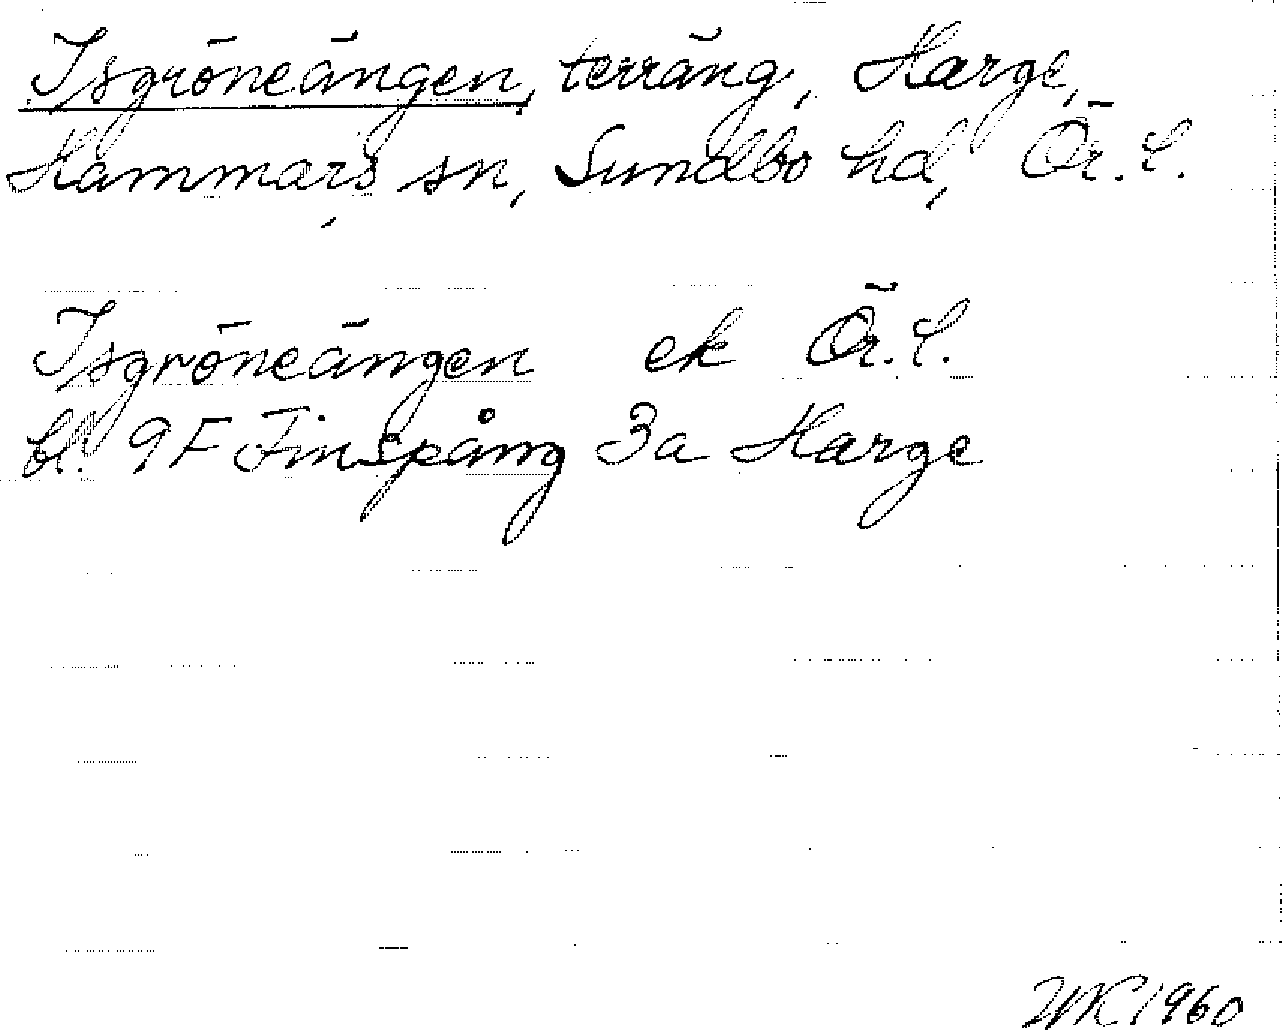 Isgröneängen, terräng, Harge,
Hammars sn, Sundbo hd, Ör. l.
Isgröneängen ek Ör. l.
bl. 9F Finspång 3a Harge
1960